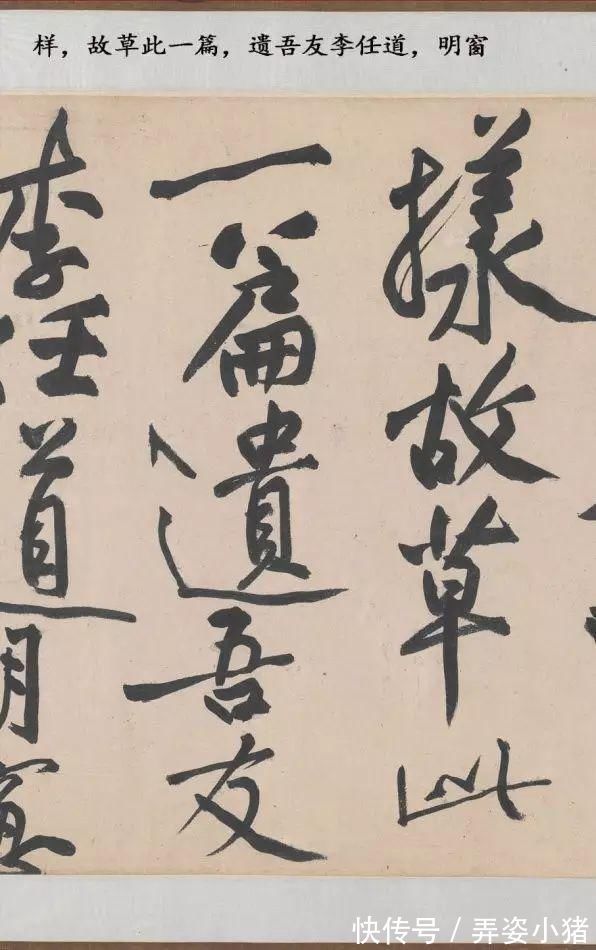 样，故草此一篇，遗吾友李任道，明窗
樣故草此
一篇遺吾友
李任道明窗
快传号／弄姿小猪